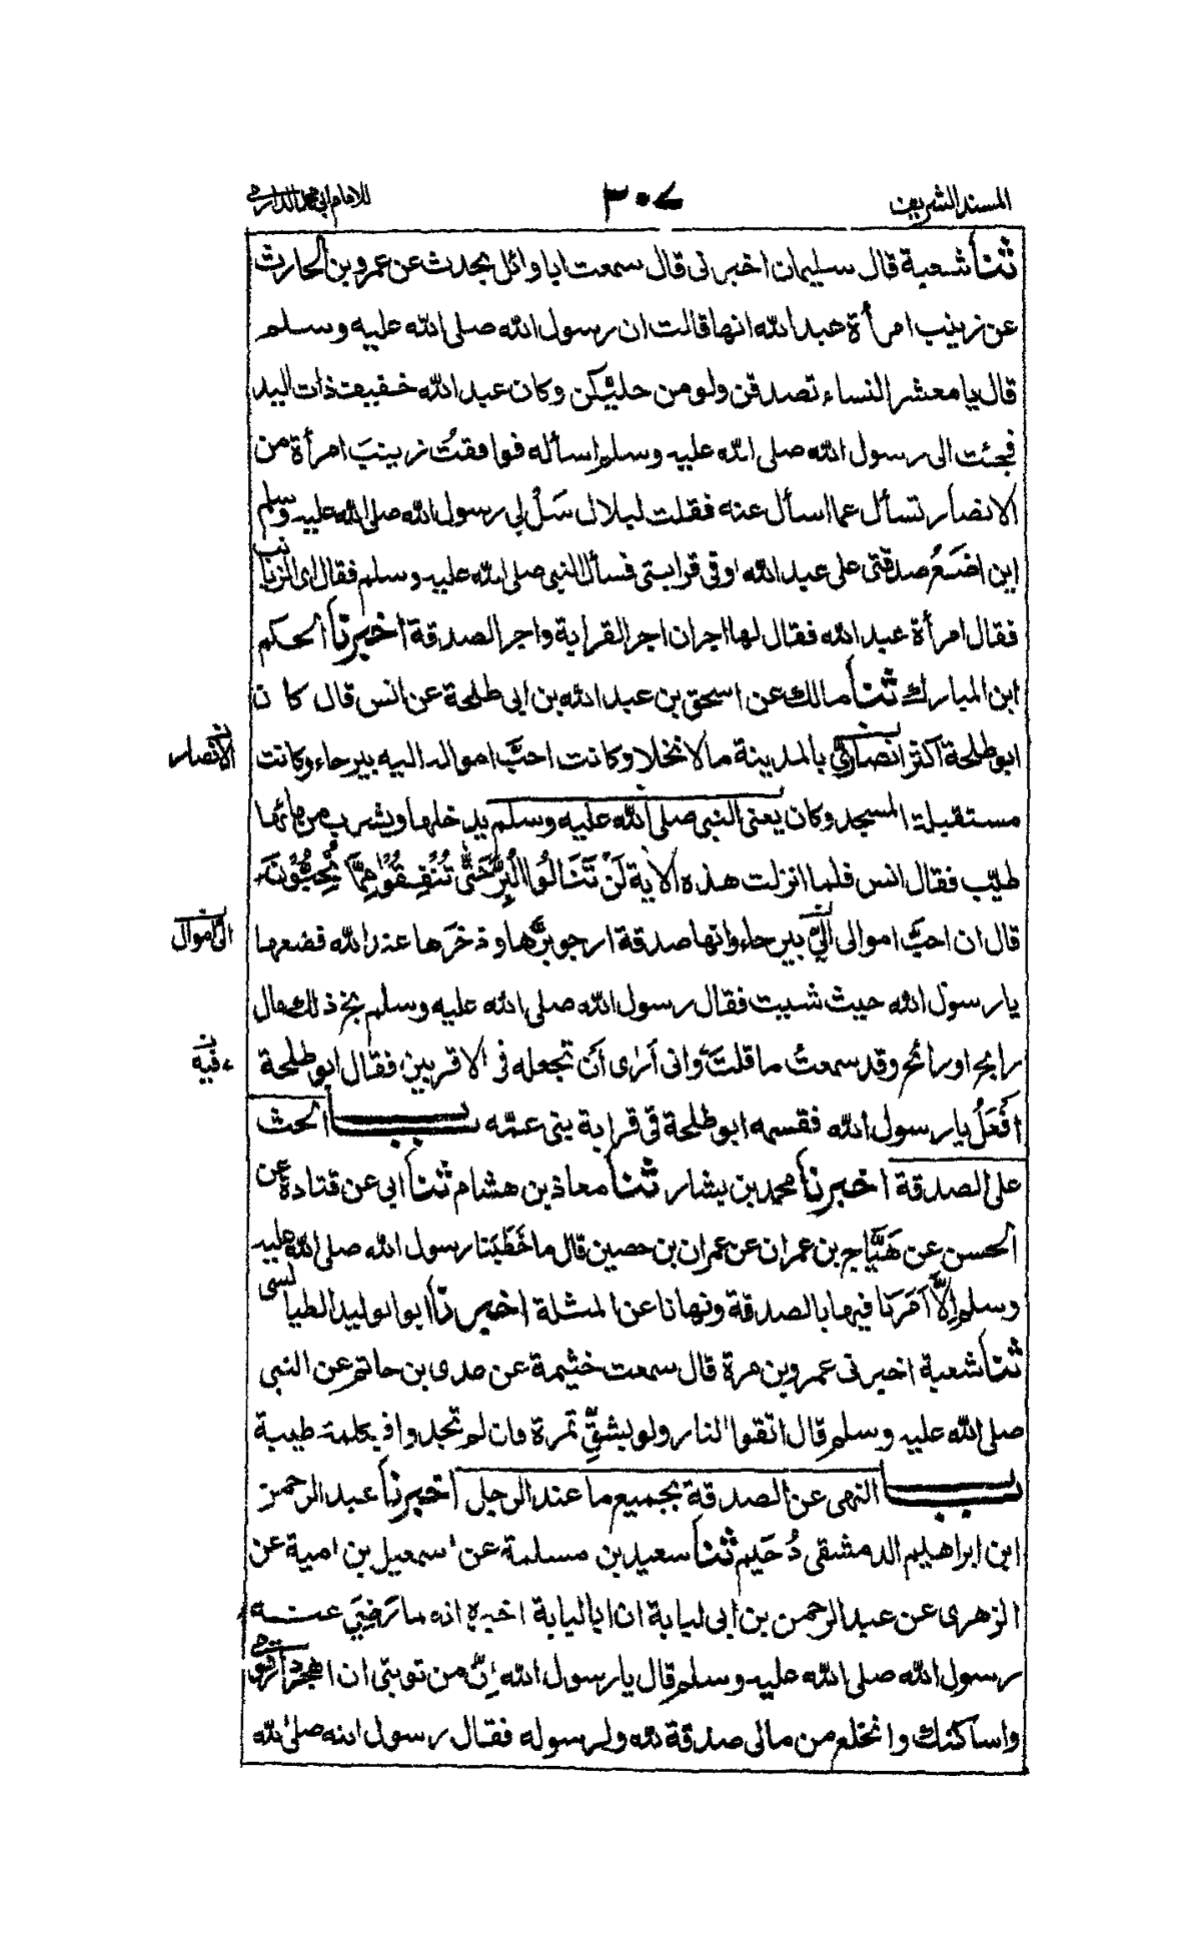 المسند الشريف
٣٠٧
للامام ابي محمد الدارمي
ثنا شعبة قال سليمان اخبرنى قال سمعت ابا وائل يحدث عن عمرو بن الحارث
عن زينب امرأة عبد الله انها قالت ان رسول الله صلى الله عليه وسلم
قال يا معشر النساء تصدقن ولو من حليكن وكان عبد الله خفيف ذات اليد
فجئت الى رسول الله صلى الله عليه وسلم اسأله فوافقت زينبَ امرأة من
الانصار تسأل عما اسأل عنه فقلت لبلال سَلْ لي رسول الله صلى الله عليه وسلم
اين اضَعُ صدقتى على عبد الله او فى قرابتى فسأل النبى صلى الله عليه وسلم فقال اى الزيانب
فقال امرأة عبد الله فقال لها اجران اجر القرابة واجر الصدقة اخبرنا الحكم
ابن المبارك ثنا مالك عن اسحق بن عبد الله بن ابى طلحة عن انس قال كان
ابو طلحة اكثر انصارىٍّ بالمدينة مالا نخلا وكانت احبَّ امواله اليه بيرحاء وكانت
الانصار
مستقبلة المسجد وكان يعنى النبى صلى الله عليه وسلم يدخلها ويشرب من مائها
طيّب فقال انس فلما انزلت هذه الاية لَنْ تَنَالُوا الْبِرَّ حَتّٰى تُنْفِقُوْا مِمَّا تُحِبُّوْنَ
قال ان احبَّ اموالى الىَّ بيرحاء وانها صدقة ارجو برَّها وذخرَها عند الله فضعها
الى اموال
يا رسول الله حيث شيت فقال رسول الله صلى الله عليه وسلم بخ ذلك مال
رابح او رائح وقد سمعتُ ما قلتَ وانى أَرٰى أَن تجعله فى الاقربين فقال ابو طلحة
فيه
اَفْعَلُ يا رسول الله فقسمه ابو طلحة فى قرابة بنى عمّه باب الحث
على الصدقة اخبرنا محمد بن بشار ثنا معاذ بن هشام ثنا ابى عن قتادة عن
الحسن عن هَيَّاج بن عمران عن عمران بن حصين قال ما خَطَبَنا رسول الله صلى الله عليه
وسلم اِلَّا اَمَرَنا فيها بالصدقة ونهانا عن المثلة اخبرنا ابو الوليد الطيالسى
ثنا شعبة اخبرنى عمرو بن مرة قال سمعت خيثمة عن عدى بن حاتم عن النبى
صلى الله عليه وسلم قال اتقوا النار ولو بشقِّ تمرة فان لم تجدوا فبكلمة طيبة
باب النهى عن الصدقة بجميع ما عند الرجل اخبرنا عبد الرحمن
ابن ابراهيم الدمشقى دُحَيم ثنا سعيد بن مسلمة عن اسمعيل بن امية عن
الزهرى عن عبد الرحمن بن ابى لبابة ان ابا لبابة اخبره انه ما رَضِيَ عنه
رسول الله صلى الله عليه وسلم قال يا رسول الله اِنَّ من توبتى ان اهجر دار قومى
واساكنك وانخلع من مالى صدقة لله ولرسوله فقال رسول الله صلى الله